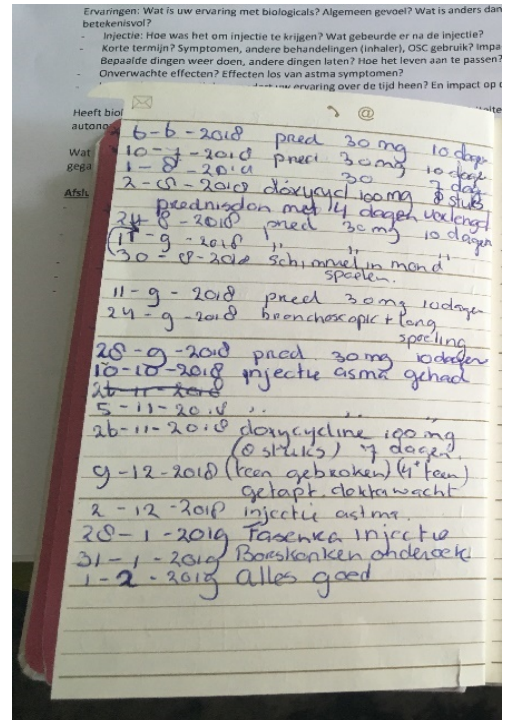 Ervaringen: Wat is uw ervaring met biologicals? Algemeen gevoel? Wat is anders dan
betekenisvol?
- Injectie: Hoe was het om injectie te krijgen? Wat gebeurde er na de injectie?
- Korte termijn? Symptomen, andere behandelingen (inhaler), OSC gebruik? Impa
Bepaalde dingen weer doen, andere dingen laten? Hoe het leven aan te passen?
- Onverwachte effecten? Effecten los van astma symptomen?
ervaring over de tijd heen? En impact op
Heeft biol
autono
Wat
gega
Afslu
@
6-6-2018 pred 30 mg 10 dagen
10-7-2018 pred 30mg 10 dage
1-8-2018 30 7 dag
2-8-2018 doxycycl 100mg 8 stuks
prednisolon met 14 dagen verlengd
24-8-2018 pred 30 mg 10 dagen
11-9-2018 ,, ,, ,,
30-8-2018 schimmel in mond
spoelen.
11-9-2018 pred 30mg 10dagen
24-9-2018 bronchoscopie + long
spoeling
28-9-2018 pred. 30mg 10dagen
10-10-2018 injectie asma gehad
26-11-2018
5-11-2018 ,, ,, ,,
26-11-2018 doxycycline 100mg
(8 stuks) 7 dagen.
9-12-2018 (teen gebroken) (4e teen)
getapt. doktawacht
2-12-2018 injectie astma.
28-1-2019 Fasenka injectie
31-1-2019 Borskanken onderoek
1-2-2019 alles goed